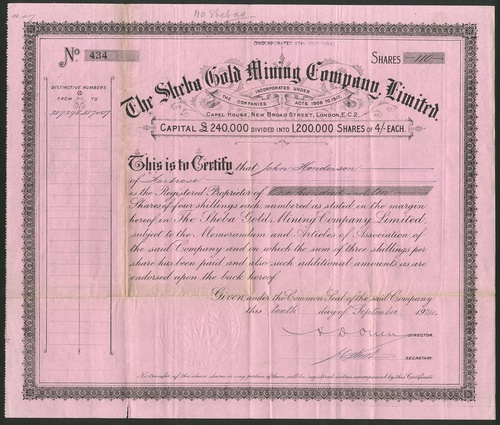 No 434
SHARES 110
The Sheba Gold Mining Company, Limited.
INCORPORATED UNDER
THE COMPANIES ACTS 1908 TO 1917
CAPEL HOUSE, NEW BROAD STREET, LONDON, E.C.2.
CAPITAL £240,000 DIVIDED INTO 1,200,000 SHARES OF 4/- EACH.
DISTINCTIVE NUMBERS
FROM TO
This is to Certify that John Henderson
of Fortrose
is the Registered Proprietor of One hundred & ten
Shares of four shillings each numbered as stated in the margin
hereof in The Sheba Gold Mining Company Limited,
subject to the Memorandum and Articles of Association of
the said Company and on which the sum of three shillings per
share has been paid and also such additional amounts as are
endorsed upon the back hereof.
Given under the Common Seal of the said Company
this tenth day of September 19
DIRECTOR.
SECRETARY.
No transfer of the above shares or any portion of them will be registered unless accompanied by this Certificate.